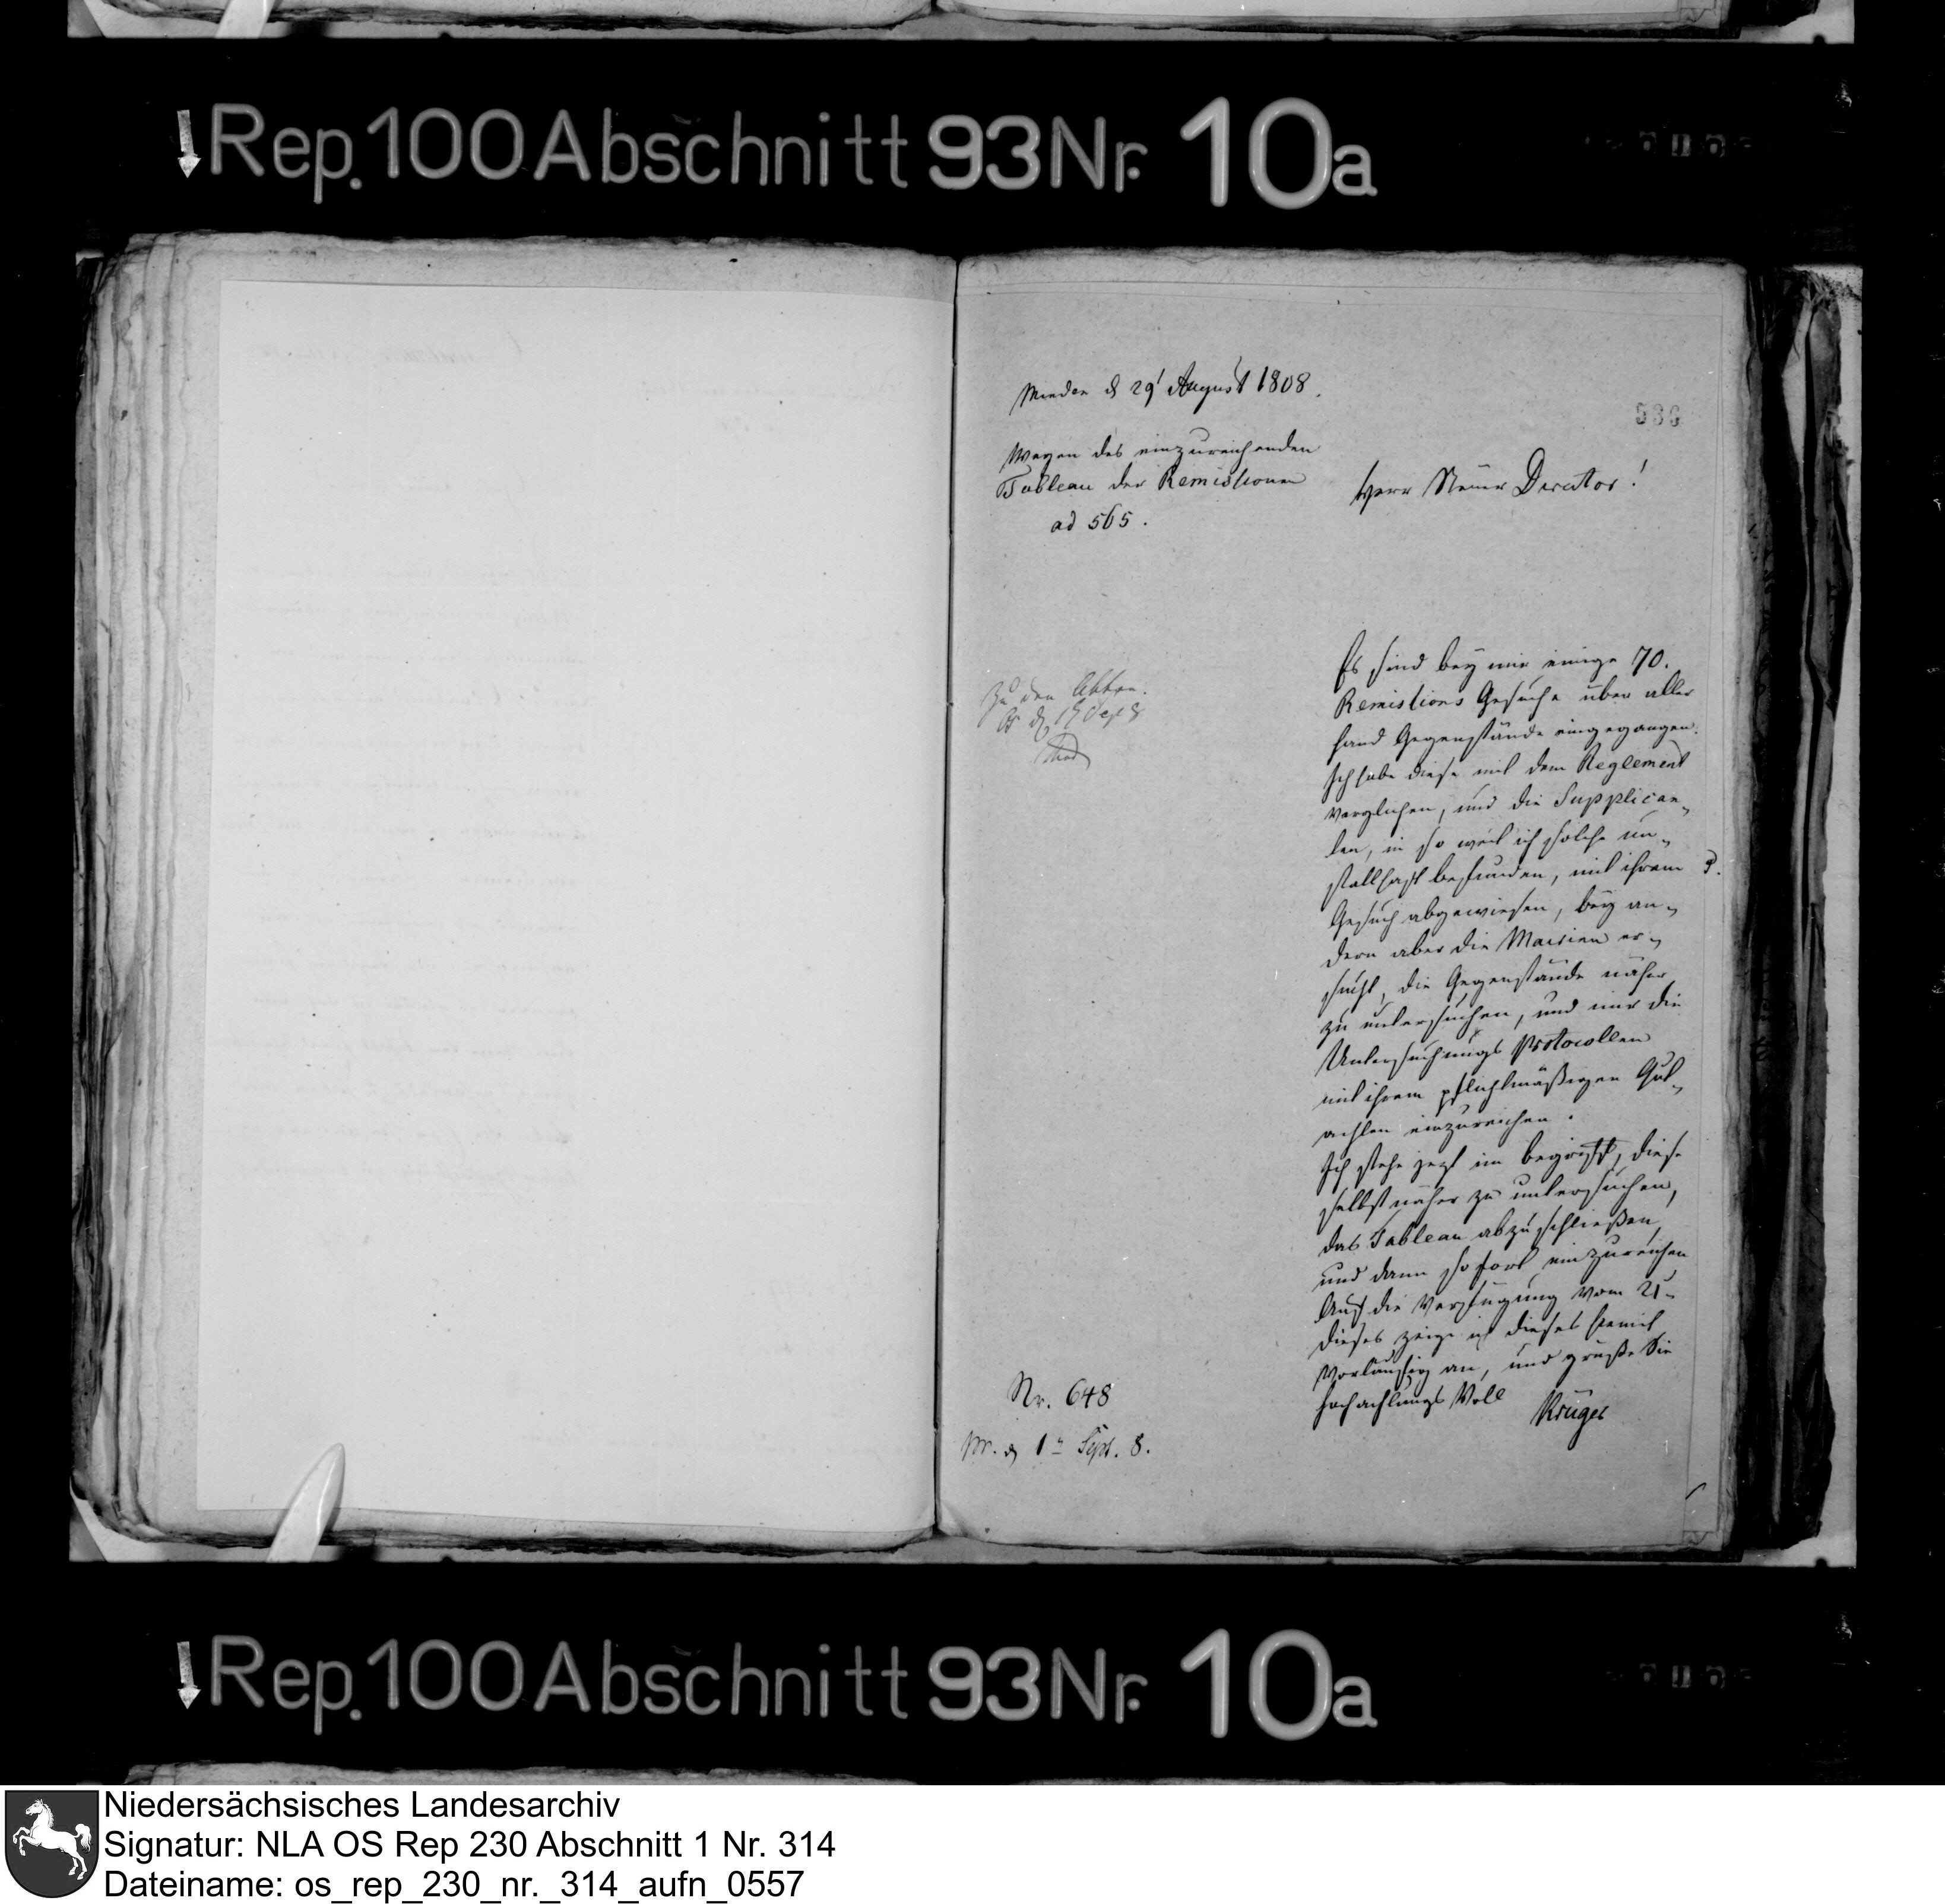 Rep. 100 Abschnitt 93 Nr. 10a
Minden d 29t August 1808.
536
Wegen des einzureichenden
Tableau der Remissionen
ad 565.
Herr Steuer Director!
Zu den Akten.
Nr. 648
Pr. d 1n Sept. 8.
Es sind bey mir einige 70.
Remissions Gesuche über aller
hand Gegenstände eingegangen.
Ich habe diese mit dem Reglement
verglichen, und die Supplican-
ten, in so weit ich solche un-
statthaft befunden, mit ihrem
Gesuch abgewiesen, bey an-
dern aber die Mairien er-
sucht, die Gegenstände näher
zu untersuchen, und mir die
Untersuchungs Protocollen
mit ihrem pflichtmäßigen Gut-
achten einzureichen.
Ich stehe jezt im begriff, diese
selbst näher zu untersuchen,
das Tableau abzuschließen,
und dann sofort einzureichen
Auf die Verfügung vom 21n
dieses zeige ich dieses hiemit
vorläufig an, und grüße Sie
hochachtungs Voll
Krüger
Rep. 100 Abschnitt 93 Nr. 10a
Niedersächsisches Landesarchiv
Signatur: NLA OS Rep 230 Abschnitt 1 Nr. 314
Dateiname: os_rep_230_nr._314_aufn_0557